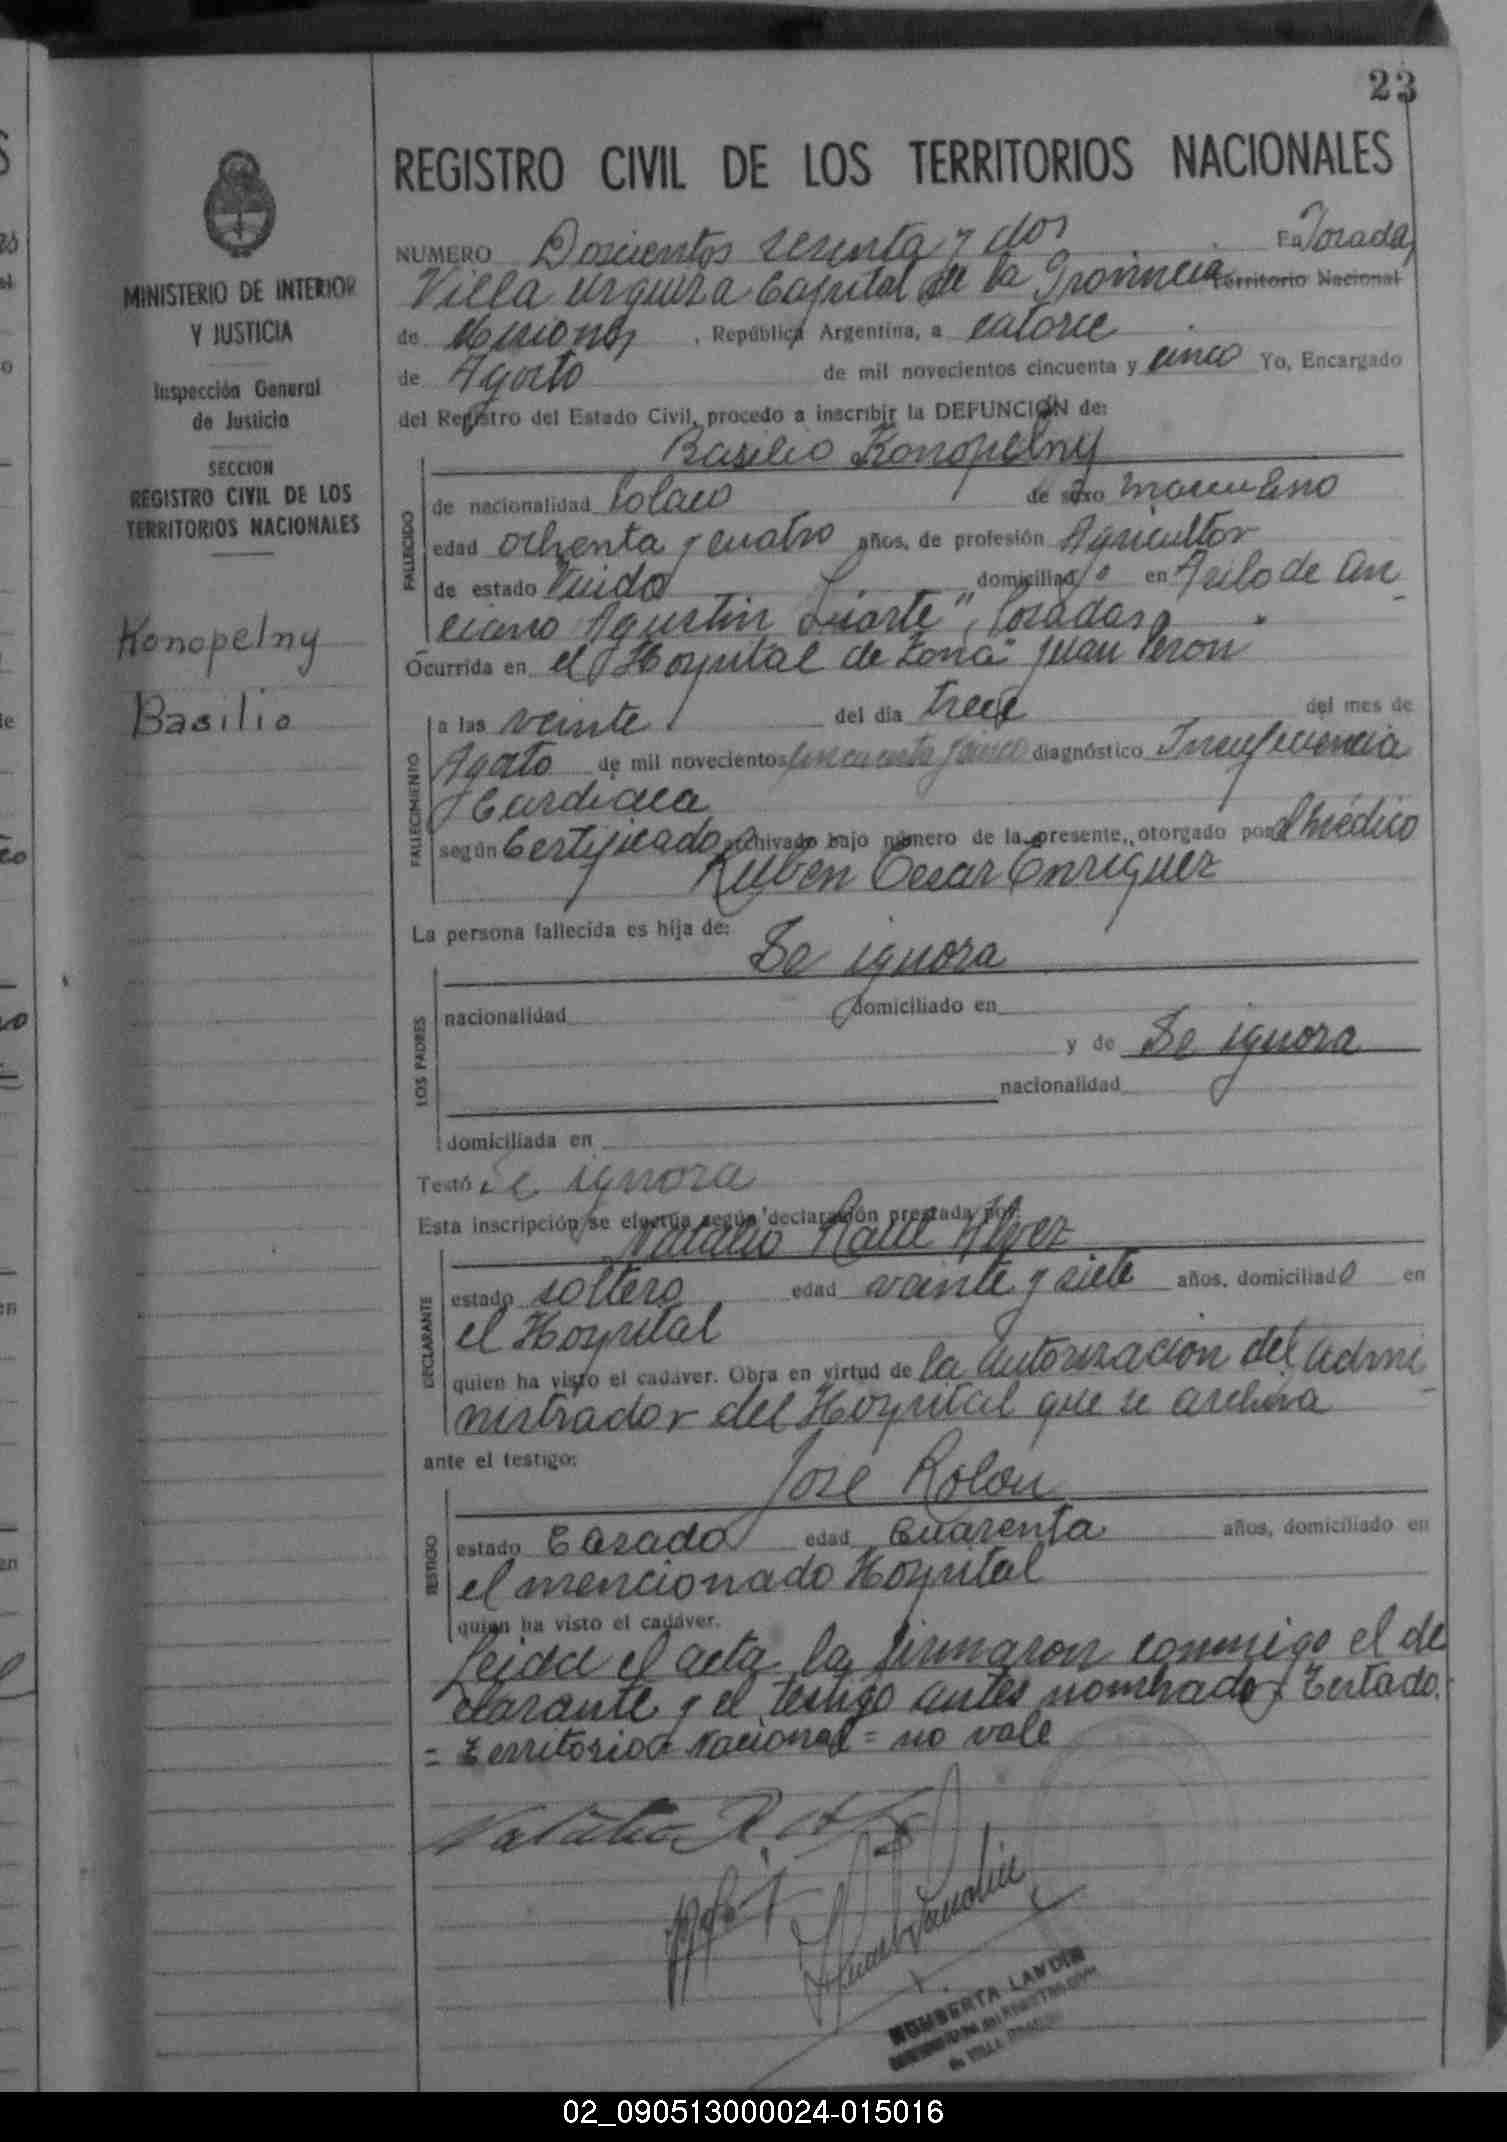 23
REGISTRO CIVIL DE LOS TERRITORIOS NACIONALES
MINISTERIO DE INTERIOR
Y JUSTICIA
Inspección General
de Justicia
SECCION
REGISTRO CIVIL DE LOS
TERRITORIOS NACIONALES
Konopelny
Basilio
NUMERO Doscientos sesenta y dos En Posadas,
Villa Urquiza Capital de la Provincia Territorio Nacional
de Misiones, República Argentina, a catorce
de Agosto de mil novecientos cincuenta y cinco Yo, Encargado
del Registro del Estado Civil, procedo a inscribir la DEFUNCIÓN de:
Basilio Konopelny
FALLECIDO
de nacionalidad Polaco de sexo masculino
edad ochenta y cuatro años, de profesión Agricultor
de estado Viudo domiciliado en Asilo de An-
ciano Agustin Duarte", Posadas
Ocurrida en el Hospital de Zona "Juan Peron"
FALLECIMIENTO
a las veinte del día trece del mes de
Agosto de mil novecientos cincuenta y cinco diagnóstico Insuficiencia
Cardiaca
según Certificado archivado bajo número de la presente, otorgado por el médico
Ruben Cesar Enriquez
La persona fallecida es hija de:
Se ignora
LOS PADRES
nacionalidad domiciliado en
y de Se ignora
nacionalidad
domiciliada en
Testó Se ignora
Esta inscripción se efectúa según declaración prestada por:
Natalio Raul Alvez
DECLARANTE
estado soltero edad veinte y siete años, domiciliado en
el Hospital
quien ha visto el cadáver. Obra en virtud de la autorizacion del Admi-
nistrador del Hospital que se archiva
ante el testigo:
José Rolon
TESTIGO
estado Casado edad Cuarenta años, domiciliado en
el mencionado Hospital
quien ha visto el cadáver.
Leida el acta la firmaron conmigo el de
clarante y el testigo antes nombrado, Testado.
= Territorio Nacional = no vale
Natalio R.
HOMBERTA LANDIN
02_090513000024-015016